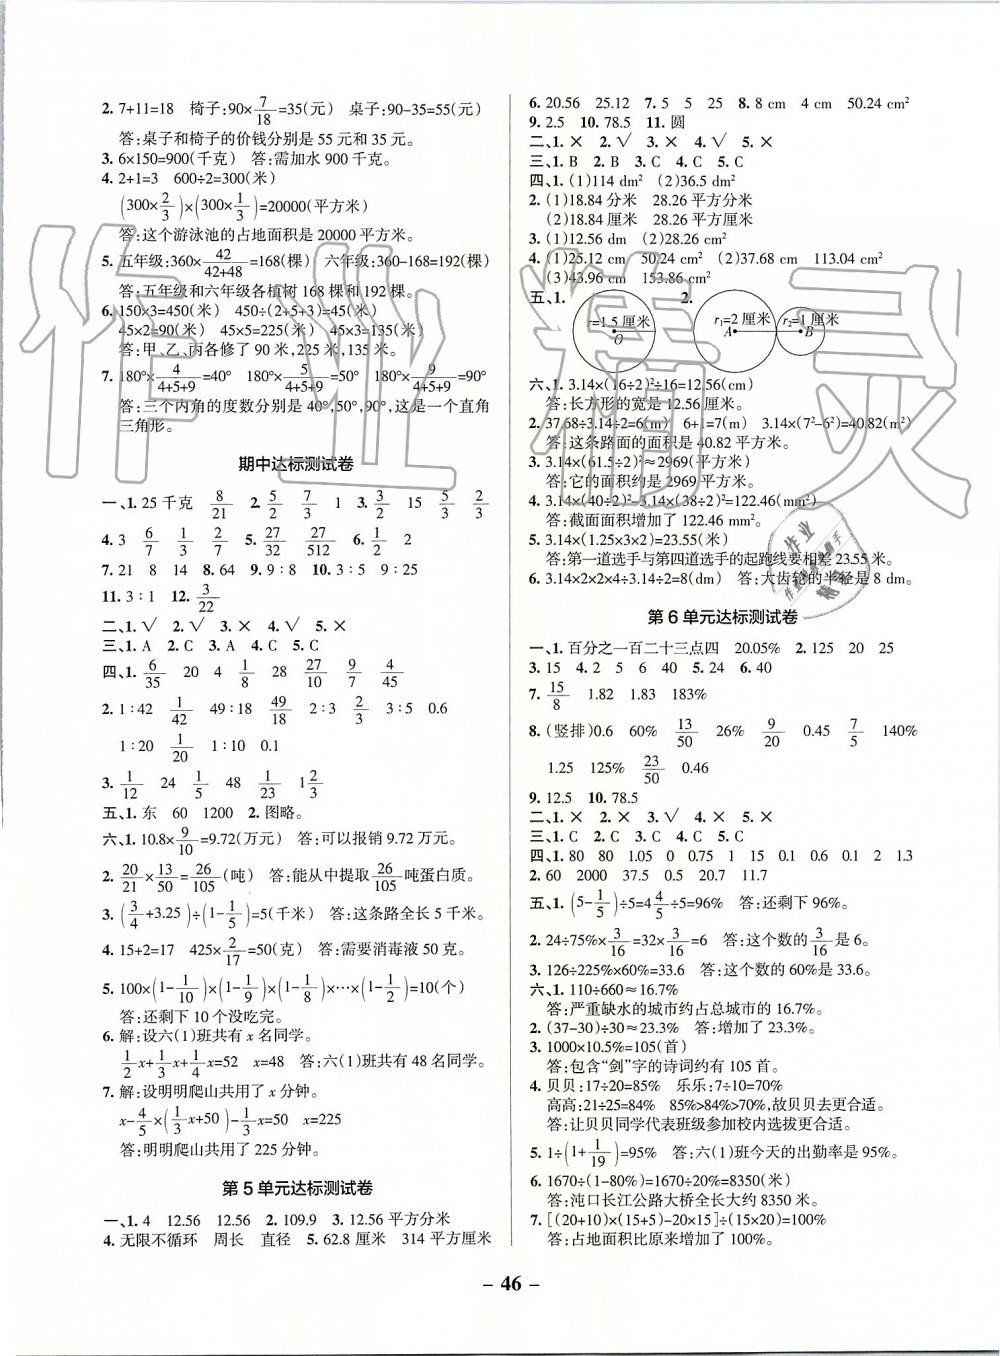 2. 7+11=18 椅子:90×7/18=35(元) 桌子:90-35=55(元)
答:桌子和椅子的价钱分别是 55 元和 35 元。
3. 6×150=900(千克) 答:需加水 900 千克。
4. 2+1=3 600÷2=300(米)
(300×2/3)×(300×1/3)=20000(平方米)
答:这个游泳池的占地面积是 20000 平方米。
5. 五年级:360×42/(42+48)=168(棵) 六年级:360-168=192(棵)
答:五年级和六年级各植树 168 棵和 192 棵。
6. 150×3=450(米) 450÷(2+5+3)=45(米)
45×2=90(米) 45×5=225(米) 45×3=135(米)
答:甲、乙、丙各修了 90 米,225 米,135 米。
7. 180°×4/(4+5+9)=40° 180°×5/(4+5+9)=50° 180°×9/(4+5+9)=90°
答:三个内角的度数分别是 40°,50°,90°,这是一个直角
三角形。
期中达标测试卷
一、1. 25 千克 8/21 2. 5/2 7/3 1 3. 3/2 15 5/3 2/3
4. 3 6/7 1/3 2/7 5. 27/32 27/512 6. 1/2 2
7. 21 8 14 8. 64 9. 9∶8 10. 3∶5 9∶25
11. 3∶1 12. 3/22
二、1. √ 2. √ 3. × 4. √ 5. ×
三、1. A 2. C 3. A 4. C 5. C
四、1. 6/35 20 4 1/8 28 27/10 9/7 4/45
2. 1∶42 1/42 49∶18 49/18 2∶3 2/3 3∶5 0.6
1∶20 1/20 1∶10 0.1
3. 1/12 24 1/5 48 1/23 1 2/3
五、1. 东 60 1200 2. 图略。
六、1. 10.8×9/10=9.72(万元) 答:可以报销 9.72 万元。
2. 20/21×13/50=26/105(吨) 答:能从中提取26/105吨蛋白质。
3. (3/4+3.25)÷(1-1/5)=5(千米) 答:这条路全长 5 千米。
4. 15+2=17 425×2/17=50(克) 答:需要消毒液 50 克。
5. 100×(1-1/10)×(1-1/9)×(1-1/8)×…×(1-1/2)=10(个)
答:还剩下 10 个没吃完。
6. 解:设六(1)班共有 x 名同学。
1/2x+1/3x+1/4x=52 x=48 答:六(1)班共有 48 名同学。
7. 解:设明明爬山共用了 x 分钟。
x-4/5×(1/3x+50)-1/3x=50 x=225
答:明明爬山共用了 225 分钟。
第 5 单元达标测试卷
一、1. 4 12.56 12.56 2. 109.9 3. 12.56 平方分米
4. 无限不循环 周长 直径 5. 62.8 厘米 314 平方厘米
6. 20.56 25.12 7. 5 5 25 8. 8 cm 4 cm 50.24 cm²
9. 2.5 10. 78.5 11. 圆
二、1. × 2. √ 3. × 4. √ 5. ×
三、1. B 2. B 3. C 4. C 5. C
四、1. (1)114 dm² (2)36.5 dm²
2. (1)18.84 分米 28.26 平方分米
(2)18.84 厘米 28.26 平方厘米
3. (1)12.56 dm (2)28.26 cm
4. (1)25.12 cm 50.24 cm² (2)37.68 cm 113.04 cm²
(3)43.96 cm 153.86 cm²
五、1. r=1.5 厘米 O 2. r₁=2 厘米 A r₂=1 厘米 B
六、1. 3.14×(16÷2)²÷16=12.56(cm)
答:长方形的宽是 12.56 厘米。
2. 37.68÷3.14÷2=6(m) 6+1=7(m) 3.14×(7²-6²)=40.82(m²)
答:这条路面的面积是 40.82 平方米。
3. 3.14×(61.5÷2)²≈2969(平方米)
答:它的面积约是 2969 平方米。
4. 3.14×(40÷2)²-3.14×(38÷2)²=122.46(mm²)
答:截面面积增加了 122.46 mm²。
5. 3.14×(1.25×3×2)=23.55(米)
答:第一道选手与第四道选手的起跑线要相差 23.55 米。
6. 3.14×2×2×4÷3.14÷2=8(dm) 答:大齿轮的半径是 8 dm。
第 6 单元达标测试卷
一、1. 百分之一百二十三点四 20.05% 2. 125 20 25
3. 15 4. 2 5 6 40 5. 24 6. 40
7. 15/8 1.82 1.83 183%
8. (竖排)0.6 60% 13/50 26% 9/20 0.45 7/5 140%
1.25 125% 23/50 0.46
9. 12.5 10. 78.5
二、1. × 2. × 3. √ 4. × 5. ×
三、1. C 2. C 3. C 4. C 5. C
四、1. 80 80 1.05 0 0.75 1 15 0.1 0.6 0.1 2 1.3
2. 60 2000 37.5 0.5 20.7 11.7
五、1. (5-1/5)÷5=4 4/5÷5=96% 答:还剩下 96%。
2. 24÷75%×3/16=32×3/16=6 答:这个数的3/16是 6。
3. 126÷225%×60%=33.6 答:这个数的 60%是 33.6。
六、1. 110÷660≈16.7%
答:严重缺水的城市约占总城市的 16.7%。
2. (37-30)÷30≈23.3% 答:增加了 23.3%。
3. 1000×10.5%=105(首)
答:包含“剑”字的诗词约有 105 首。
4. 贝贝:17÷20=85% 乐乐:7÷10=70%
高高:21÷25=84% 85%>84%>70%,故贝贝去更合适。
答:让贝贝同学代表班级参加校内选拔更合适。
5. 1÷(1+1/19)=95% 答:六(1)班今天的出勤率是 95%。
6. 1670÷(1-80%)=1670÷20%=8350(米)
答:沌口长江公路大桥全长大约 8350 米。
7. [(20+10)×(15+5)-20×15]÷(15×20)=100%
答:占地面积比原来增加了 100%。
– 46 –
作业精灵